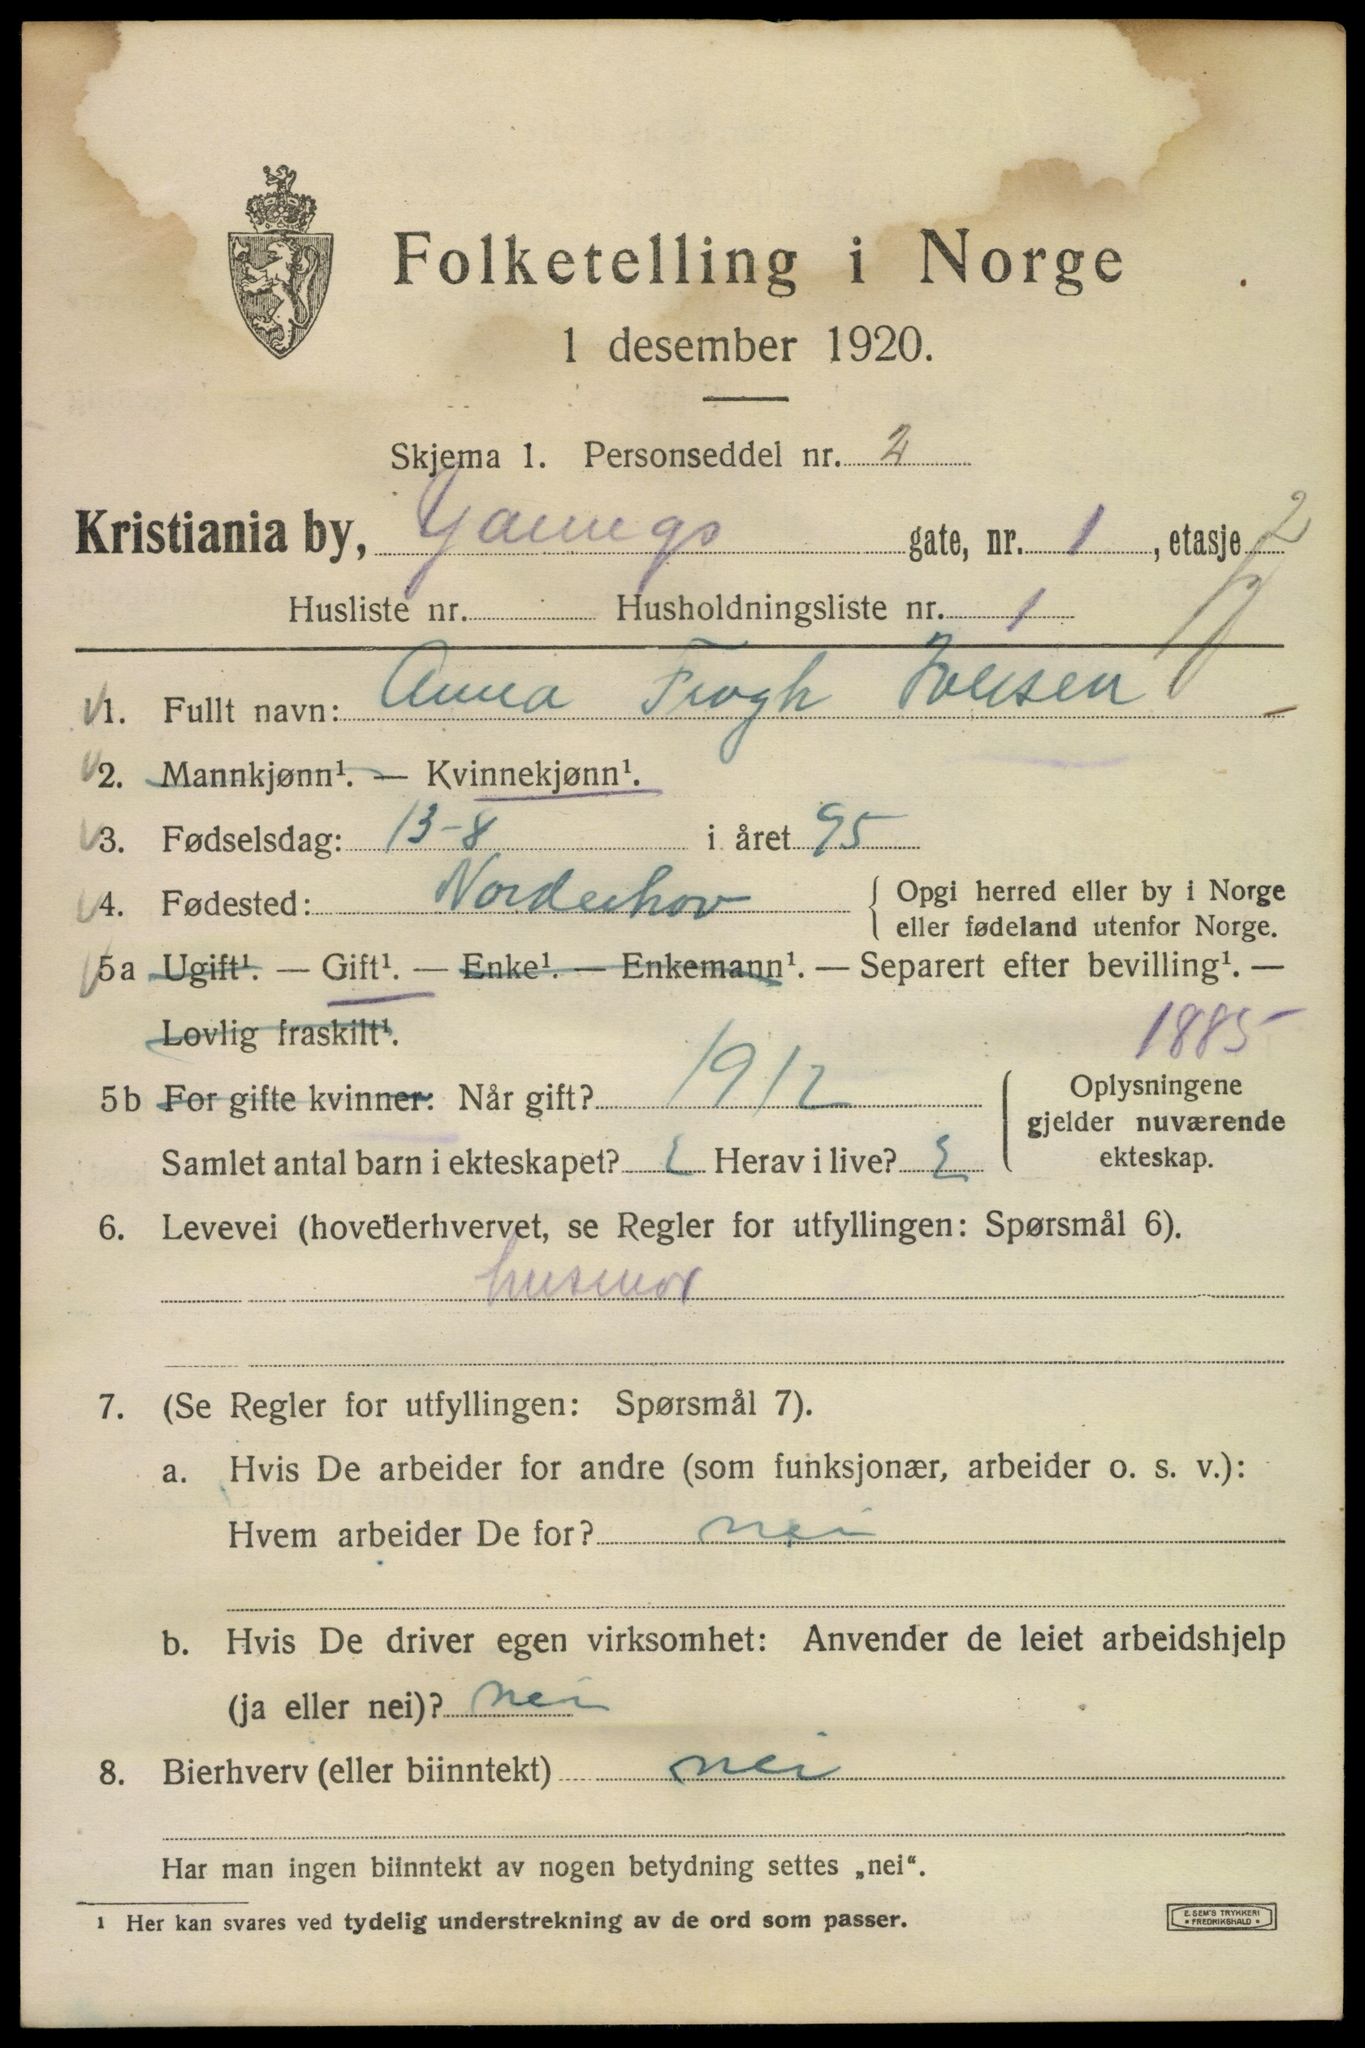 Folketelling i Norge
1 desember 1920.
Skjema 1. Personseddel nr. 2
Kristiania by, gate, nr. 1, etasje 2
Husliste nr. Husholdningsliste nr. 1
1. Fullt navn: Anna Frogh
2. Mannkjønn¹. — Kvinnekjønn¹.
3. Fødselsdag: 13-8 i året 95
4. Fødested: Norderhov { Opgi herred eller by i Norge
eller fødeland utenfor Norge.
5a Ugift¹. — Gift¹. — Enke¹. — Enkemann¹. — Separert efter bevilling¹. —
Lovlig fraskilt¹.
1885
5b For gifte kvinner: Når gift? 1912
Samlet antal barn i ekteskapet? Herav i live?
{ Oplysningene
gjelder nuværende
ekteskap.
6. Levevei (hovederhvervet, se Regler for utfyllingen: Spørsmål 6).
husmor
7. (Se Regler for utfyllingen: Spørsmål 7).
a. Hvis De arbeider for andre (som funksjonær, arbeider o. s. v.):
Hvem arbeider De for? nei
b. Hvis De driver egen virksomhet: Anvender de leiet arbeidshjelp
(ja eller nei)? nei
8. Bierhverv (eller biinntekt) nei
Har man ingen biinntekt av nogen betydning settes „nei“.
¹ Her kan svares ved tydelig understrekning av de ord som passer.
E. SEM'S TRYKKERI
FREDRIKSHALD